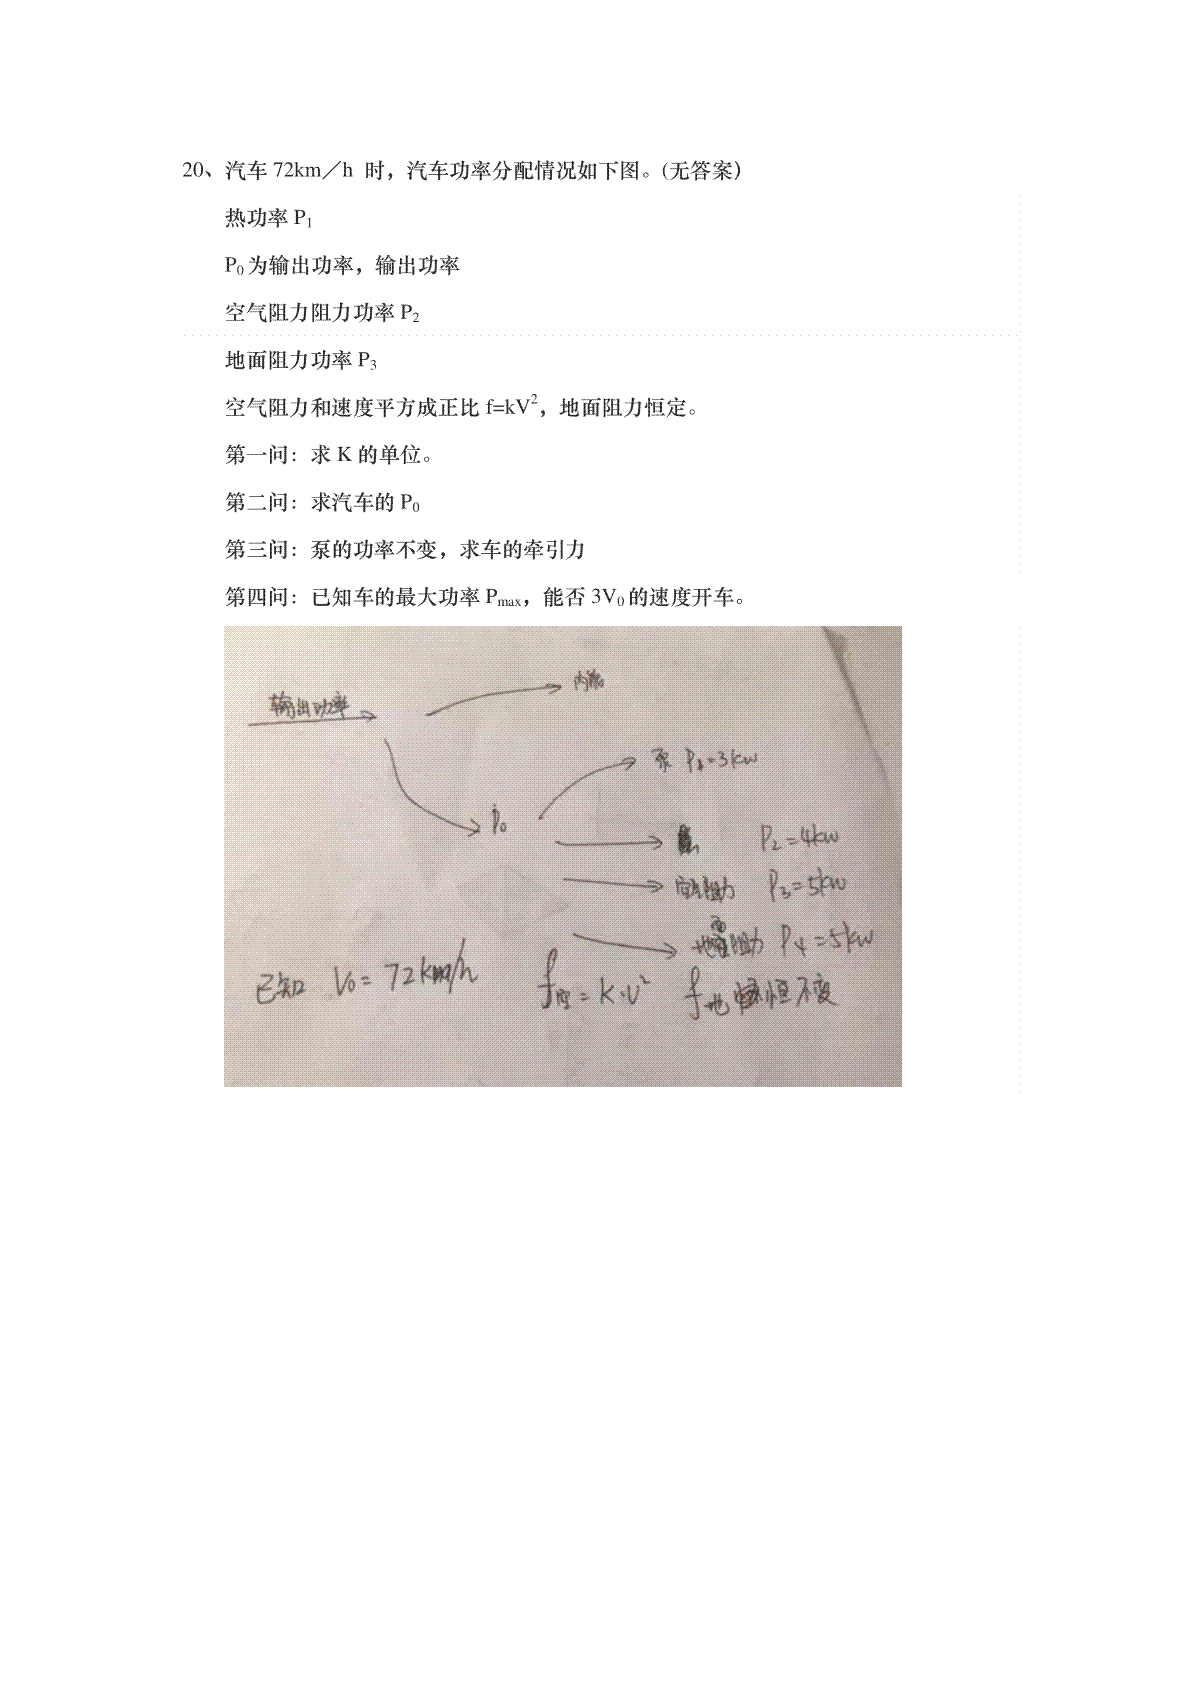 20、汽车 72km／h 时，汽车功率分配情况如下图。(无答案)
热功率 P₁
P₀为输出功率，输出功率
空气阻力阻力功率 P₂
地面阻力功率 P₃
空气阻力和速度平方成正比 f=kV²，地面阻力恒定。
第一问：求 K 的单位。
第二问：求汽车的 P₀
第三问：泵的功率不变，求车的牵引力
第四问：已知车的最大功率 Pmax，能否 3V₀的速度开车。
内能
输出功率
泵 P₁=3kw
P₀
P₂=4kw
阻力 P₃=5kw
地面阻力 P₄=5kw
已知 V₀=72km/h f阻=K·V² f地 恒不变